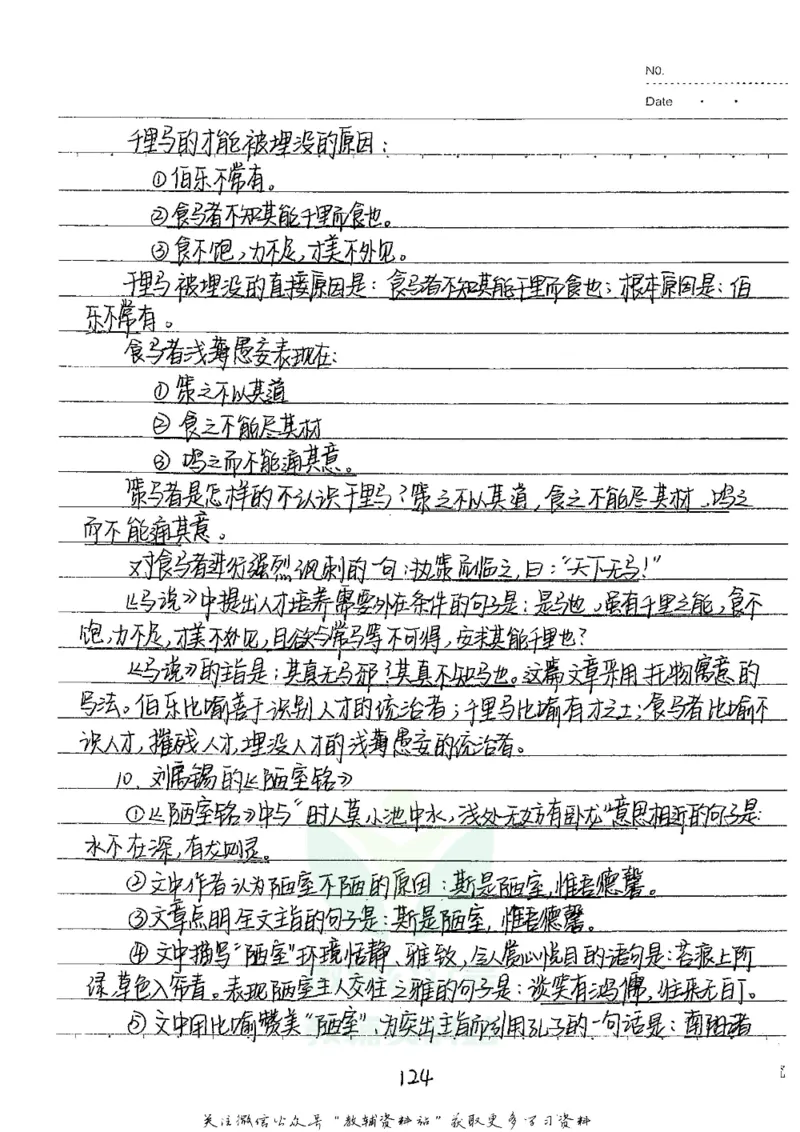 NO.
Date
千里马的才能被埋没的原因：
①伯乐不常有。
②食马者不知其能千里而食也。
③食不饱，力不足，才美不外见。
千里马被埋没的直接原因是：食马者不知其能千里而食也；根本原因是：伯
乐不常有。
食马者浅薄愚妄表现在：
①策之不以其道
②食之不能尽其材
③鸣之而不能通其意。
策马者是怎样的不认识千里马？策之不以其道，食之不能尽其材，鸣之
而不能通其意。
对食马者进行强烈讽刺的一句：执策而临之，曰：“天下无马！”
《马说》中提出人才培养需要外在条件的句子是：是马也，虽有千里之能，食不
饱，力不足，才美不外见，且欲与常马等不可得，安求其能千里也？
《马说》的主旨是：其真无马邪？其真不知马也。这篇文章采用托物寓意的
写法。伯乐比喻善于识别人才的统治者；千里马比喻有才之士；食马者比喻不
识人才，摧残人才，埋没人才的浅薄愚妄的统治者。
10、刘禹锡的《陋室铭》
①《陋室铭》中与“时人莫小池中水，浅处无妨有卧龙”意思相近的句子是：
水不在深，有龙则灵。
②文中作者认为陋室不陋的原因：斯是陋室，惟吾德馨。
③文章点明全文主旨的句子是：斯是陋室，惟吾德馨。
④文中描写“陋室”环境恬静、雅致，令人赏心悦目的语句是：苔痕上阶
绿，草色入帘青。表现陋室主人交往之雅的句子是：谈笑有鸿儒，往来无白丁。
⑤文中用比喻赞美“陋室”，为突出主旨而引用孔子的一句话是：南阳诸
124
关注微信公众号“教辅资料站”获取更多学习资料